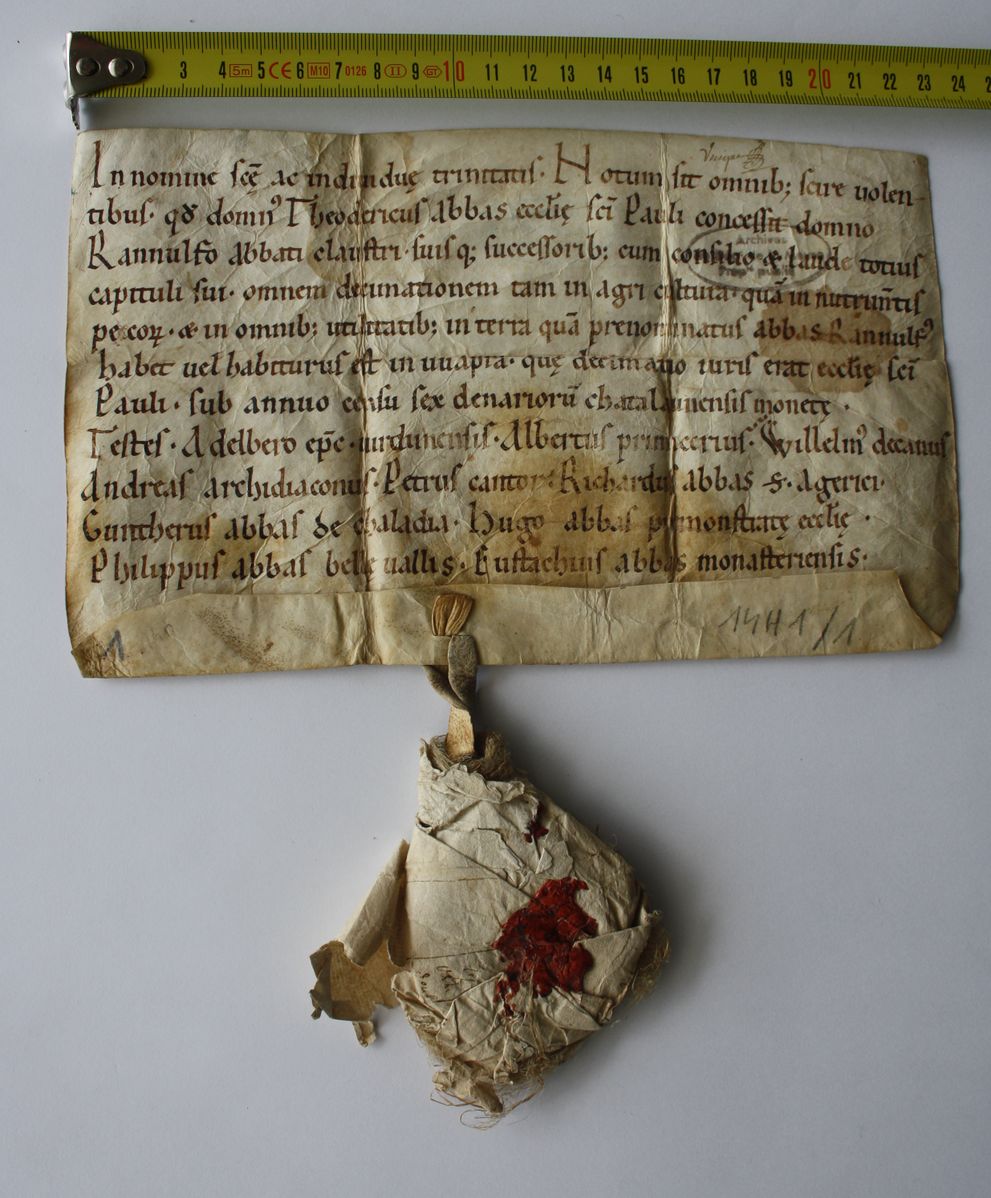 3 4 5m 5 CE 6 M10 7 0126 8 II 9 GT 10 11 12 13 14 15 16 17 18 19 20 21 22 23 24 2
In nomine scę ac indiuiduę trinitatis. Notum sit omnib; scire uolen-
tibus. qd domn' Theodericus abbas ecclię sci Pauli concessit domno
Rannulfo abbati claustri. suisq; successorib; cum consilio & laude totius
Archives
capituli sui. omnem decimationem tam in agri cultura. quā in nutrim̄tis
pecorꝝ. & in omnib; utilitatib; in terra quā prenominatus abbas Rannulf'
habet uel habiturus est in uuapra. quę decimatio iuris erat ecclię sci
Pauli. sub annuo censu sex denariorū chatalaunensis monetę.
Testes. Adelbero epc uirdunensis. Albertus primicerius. Willelm' decanus
Andreas archidiaconus. Petrus cantor. Richardus abbas S. Agerici.
Guntherus abbas de chaladia. Hugo abbas premonstratę ecclię.
Philippus abbas bellę uallis. Eustachius abbas monasteriensis.
1
14H1/1